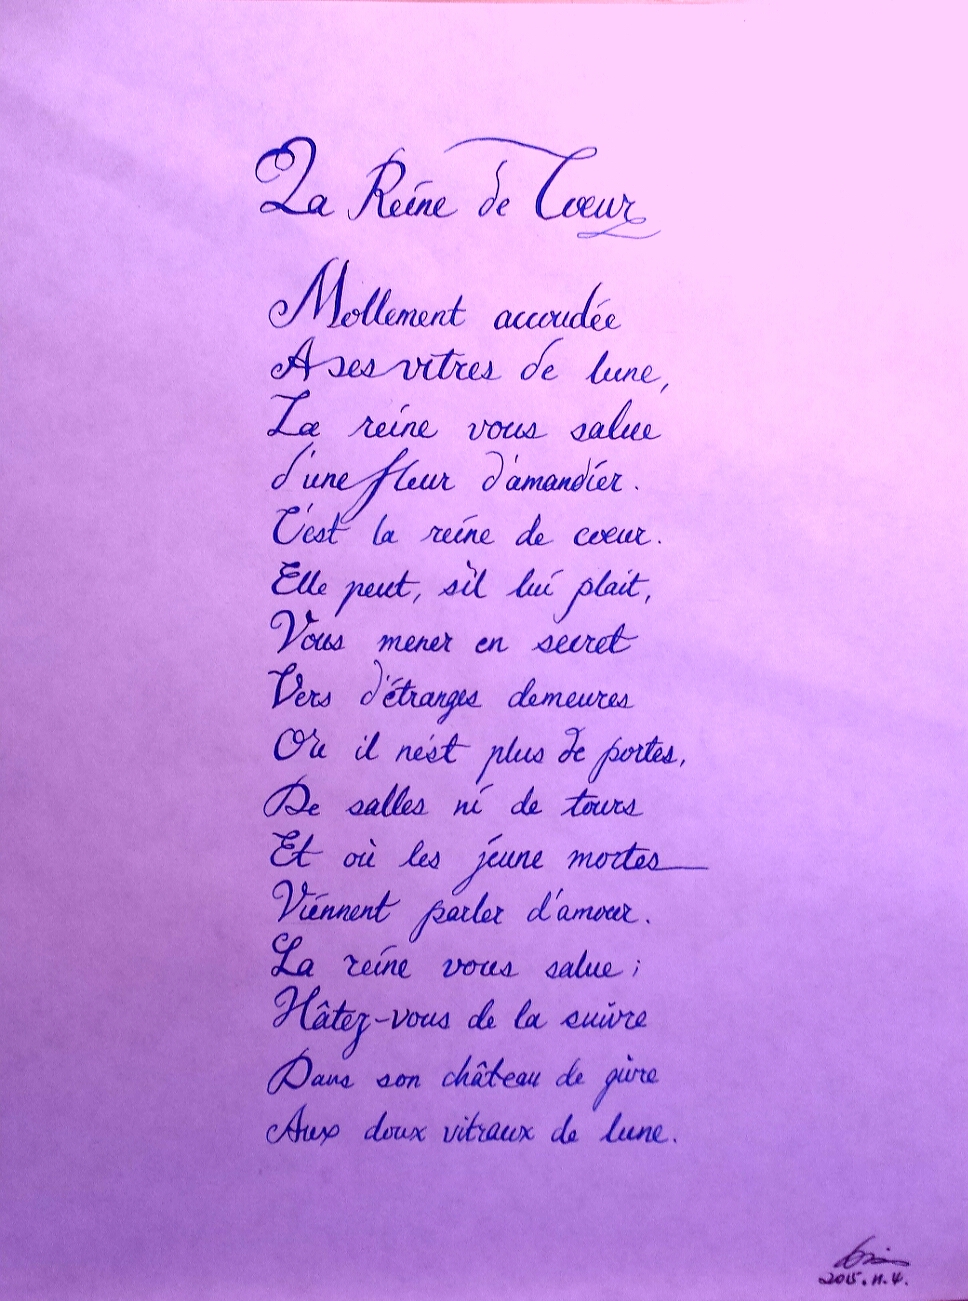 La Reine de Cœur
Mollement accoudée
A ses vitres de lune,
La reine vous salue
d'une fleur d'amandier.
C'est la reine de cœur.
Elle peut, s'il lui plait,
Vous mener en secret
Vers d'étranges demeures
Où il n'est plus de portes,
De salles ni de tours
Et où les jeune mortes
Viennent parler d'amour.
La reine vous salue ;
Hâtez-vous de la suivre
Dans son château de givre
Aux doux vitraux de lune.
2015.11.4.